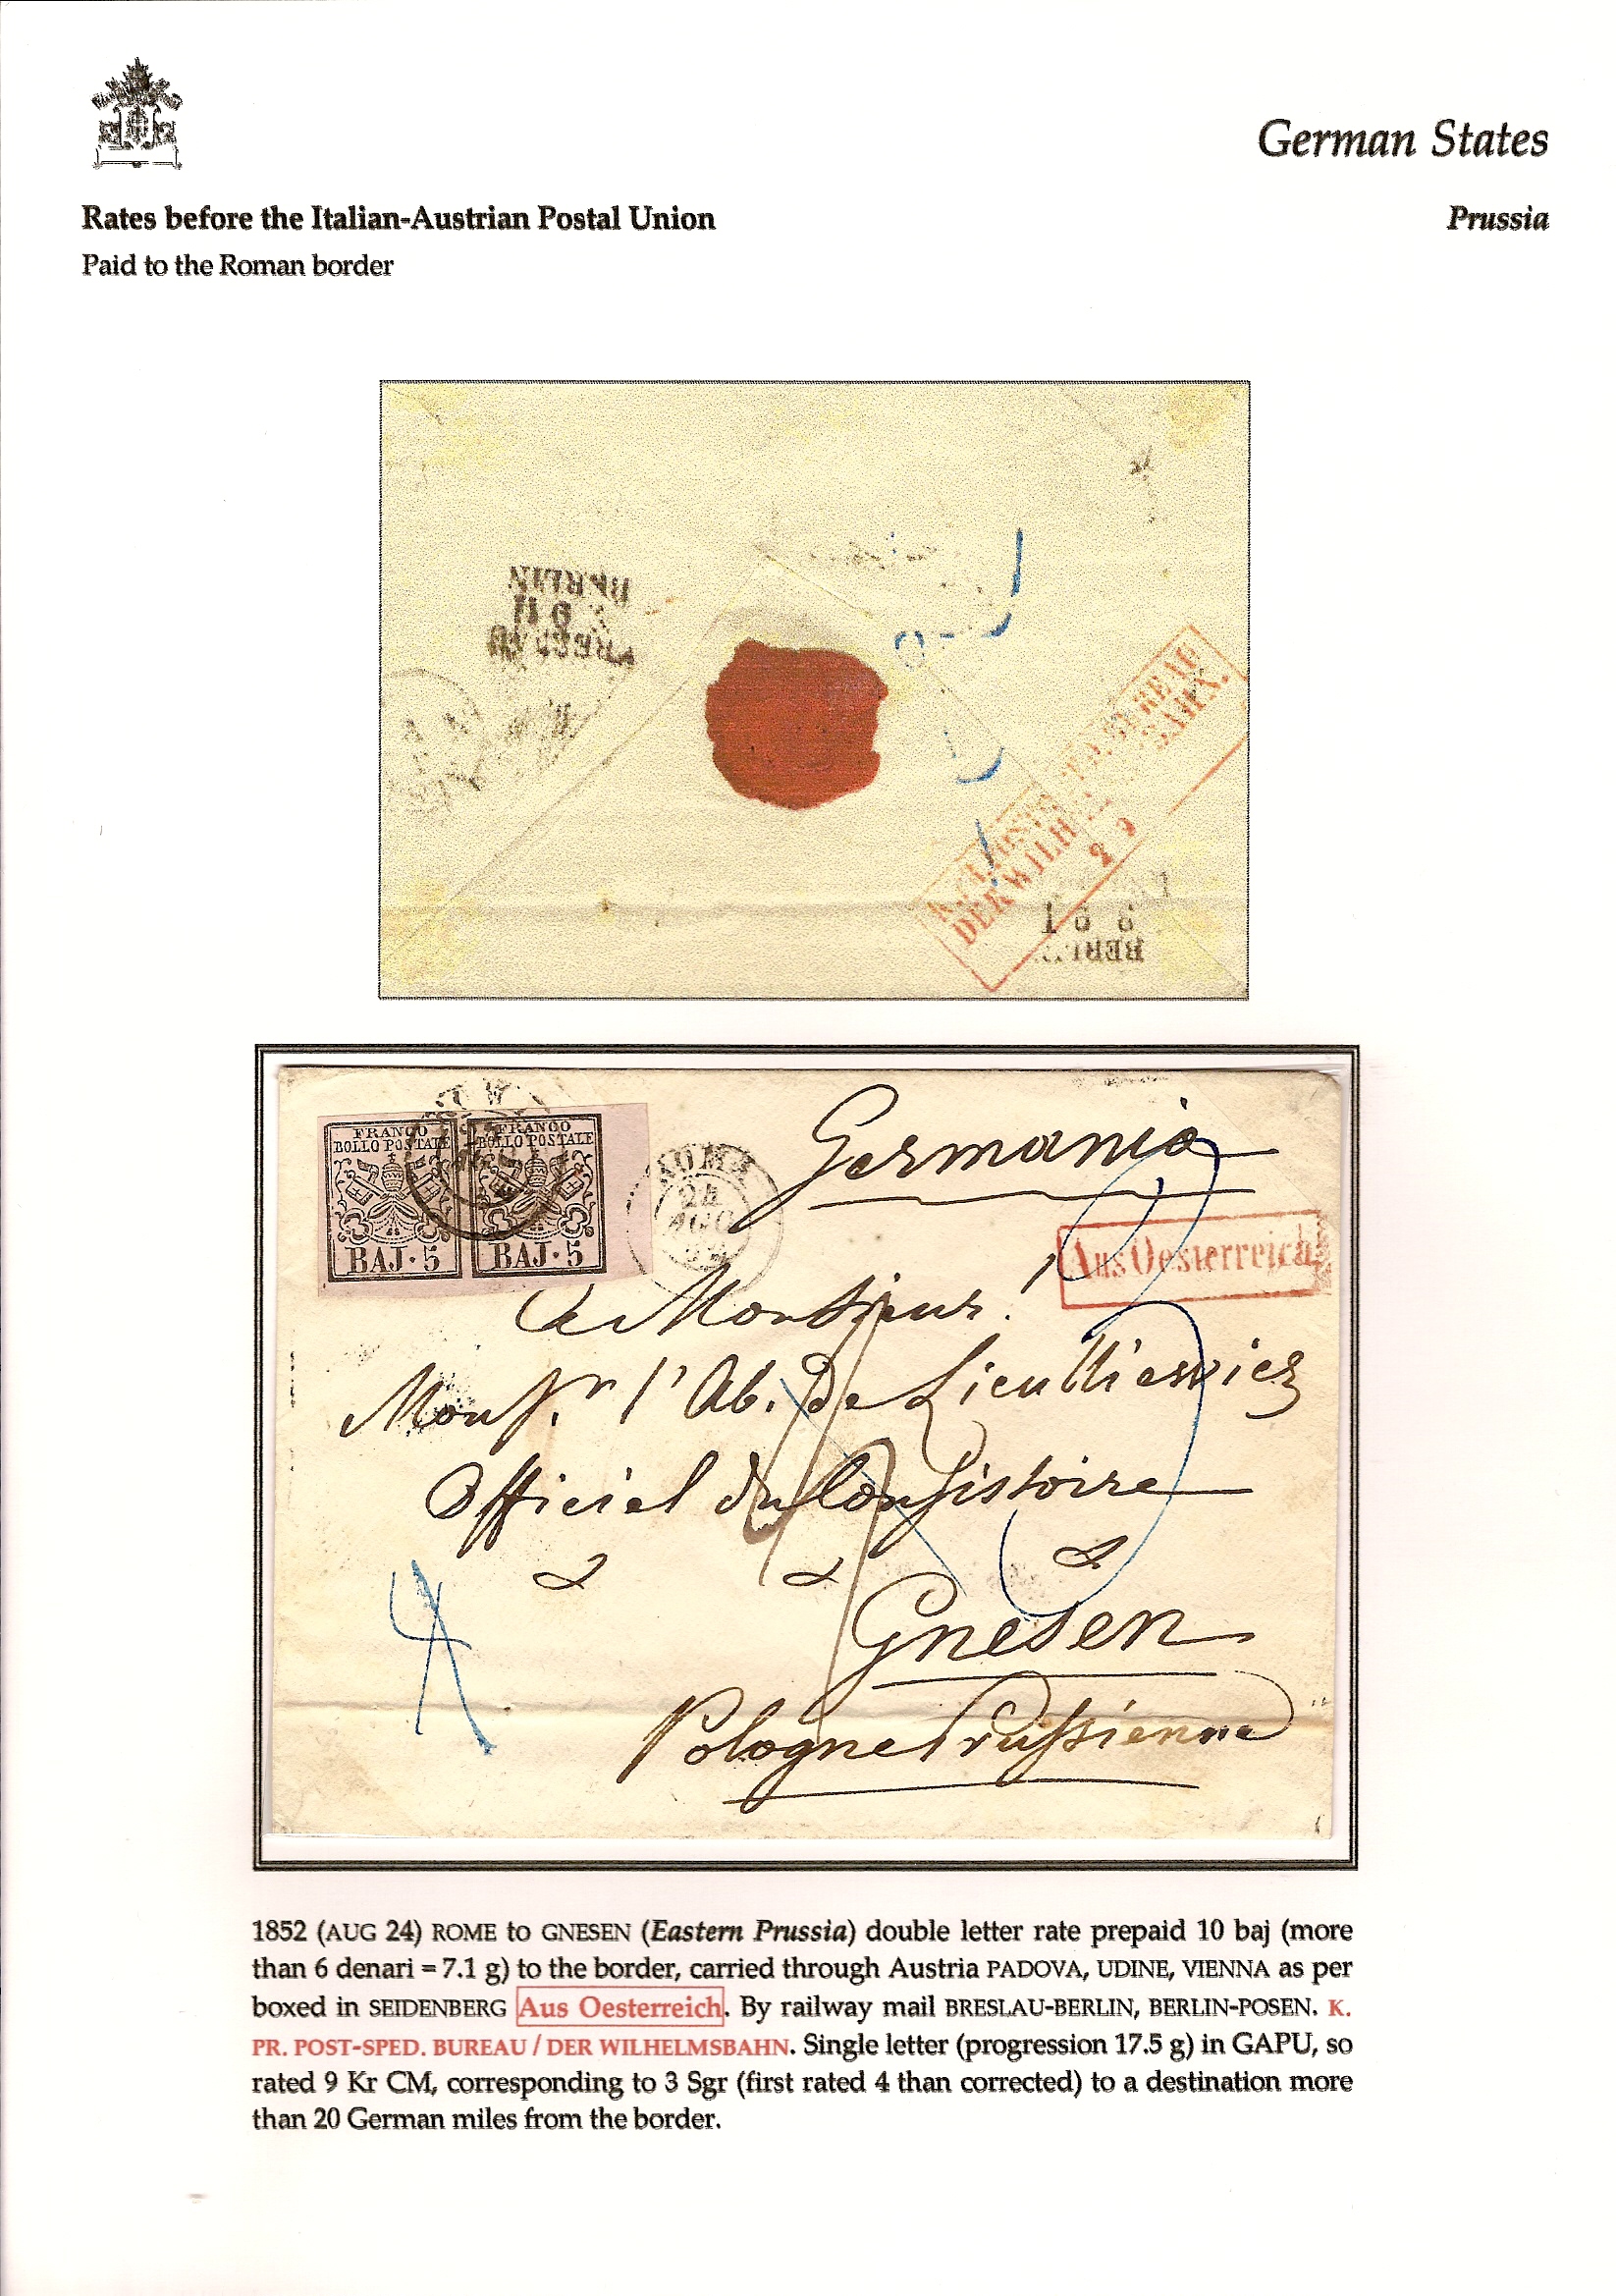 German States
Rates before the Italian-Austrian Postal Union
Prussia
Paid to the Roman border
BERLIN
9 II
K. PR. POST-SP BUREAU
DER WILH BAHN.
2 9
BERLIN
FRANCO
BOLLO POSTALE
BAJ · 5
FRANCO
BOLLO POSTALE
BAJ · 5
ROMA
24
AGO
52
Germania
Aus Oesterreich
A Monsieur!
Monsr. l'Ab. De
Officiel du Consistoire
Gnesen
Pologne Prussienne
4
1852 (AUG 24) ROME to GNESEN (Eastern Prussia) double letter rate prepaid 10 baj (more
than 6 denari = 7.1 g) to the border, carried through Austria PADOVA, UDINE, VIENNA as per
boxed in SEIDENBERG Aus Oesterreich. By railway mail BRESLAU-BERLIN, BERLIN-POSEN. K.
PR. POST-SPED. BUREAU / DER WILHELMSBAHN. Single letter (progression 17.5 g) in GAPU, so
rated 9 Kr CM, corresponding to 3 Sgr (first rated 4 than corrected) to a destination more
than 20 German miles from the border.